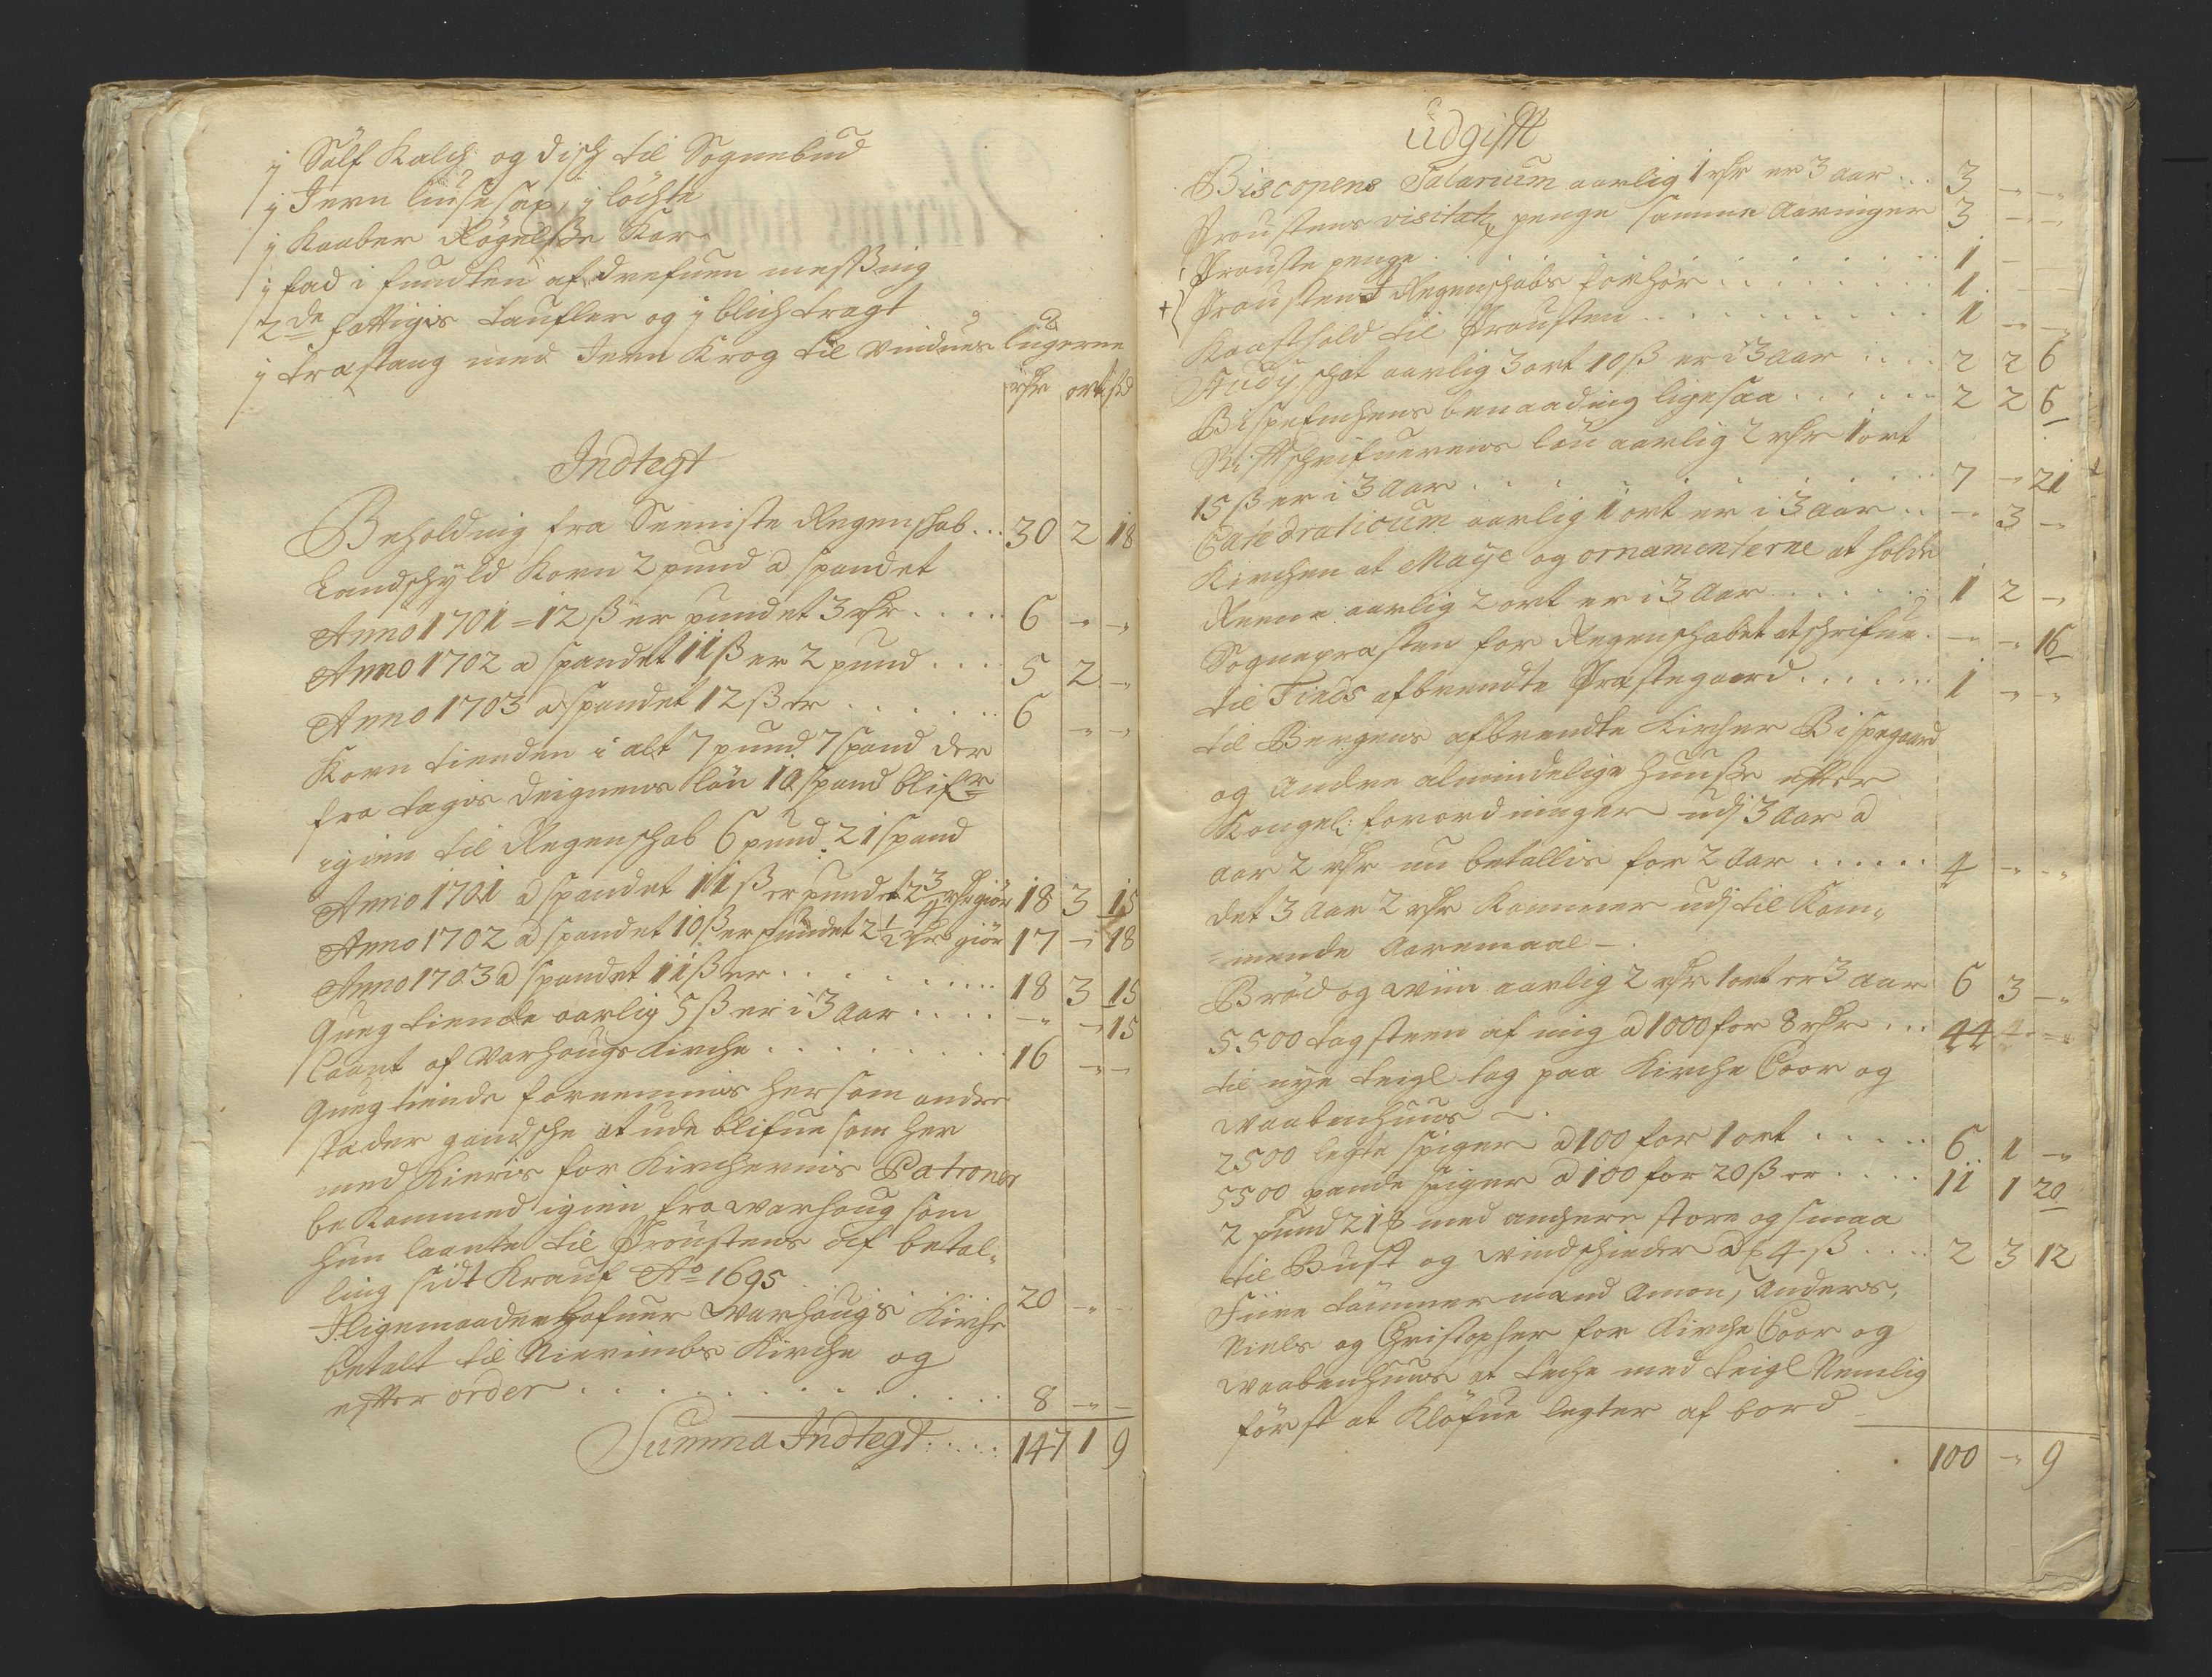 j Sölf Kalch og Disch til Sognebud
j Jern liuse sax, j löchte
j Kaaber Rögelse Kar
j fad i fundten af drefuen messing
2de fattigis taufler og j blich tragt
j træstang med Jern Krog til vindues lugerne
rdr ort ß
Indtegt
Beholdnig fra Seeniste Regenschab ... 30 2 18
Landschyld Korn 2 pund a spandet
Anno 1701 = 12 ß er pundet 3 rdr .... 6 - -
Anno 1702 a spandet 11 ß er 2 pund .... 5 2 -
Anno 1703 a spandet 12 ß er ....... 6 - -
Korn tienden i alt 7 pund 7 spand der
fra tagis Deignens lön 10 spand blifr
igien til Regenschab 6 pund 21 spand
Anno 1701 a spandet 11 ß er pundet 2 3/4 rdr giör 18 3 15
Anno 1702 a spandet 10 ß er pundet 2 1/2 rdr giör 17 - 18
Anno 1703 a spandet 11 ß er ........ 18 3 15
Queg tiende aarlig 5 ß er i 3 aar .... - - 15
Laant af Varhougs Kirche ........ 16 - -
Queg tiende fornemmis her som andre
stæder gandsche at ude blifue som her
med Kieris for Kirchernis Patroner
be Kommed igien fra Warhoug som
hun laante til Proustens af betal-
ling sidt Krauf Ao 1695 ..... 20 - -
Iligemaade Hafuer Warhougs Kirche
betalt til Nierimbs Kirche og
effter order ........... 8 - -
Summa Indtegt .... 147 1 9
Udgifft
Biscopens Salarium aarlig 1 rdr er 3 aar ... 3 - -
Proustens visitatz penge samme Aaringer 3 - -
Prouste penge ......... 1 - -
Proustens Regenschabs forhör ....... 1 - -
Kaasthold til Prousten ......... 1 - -
Studij schat aarlig 3 ort 10 ß er i 3 Aar .... 2 2 6
Bispe benaadnig ligesaa ...... 2 2 6
Stifftschrifuerens lön aarlig 2 rdr 1 ort
15 ß er i 3 Aar ......... 7 - 21
Catedraticum aarlig 1 ort er i 3 Aar .. - 3 -
Kirchen at Maye og ornamenterne at holde
Reene aarlig 2 ort er i 3 Aar ...... 1 2 -
Sognepresten for Regenschabet at schrifue - - 16
til Tinds afbrendte Præstegaard ...... 1 - -
til Bergens afbrendte Kircher Bispegaard
og andre almindelige Huusse effter
Kongel: forordninger udj 3 Aar a
aar 2 rdr nu betallis for 2 Aar ...... 4 - -
det 3 Aar 2 rdr Kommer udj til Kom-
mende Aaremaal -
Bröd og Wiin aarlig 2 rdr 1 ort er 3 Aar 6 3 -
5500 tagsteen af mig a 1000 for 8 rdr ... 44 - -
til nye teigl tag paa Kirche Coor og
Waabenhuus -
2500 legte spiger a 100 for 1 ort ..... 6 1 -
5500 pande spiger a 100 for 20 ß er .... 11 1 20
2 pund 21 med anchere store og smaa
til Bust og Windschieder a 4 ß .... 2 3 12
Fiire tömmermænd Amon, Anders,
Niels og Christopher for Kirche Coor og
Waabenhuus at teche med teigl Nemlig
först at Klöfue legter af bord
100 - 9